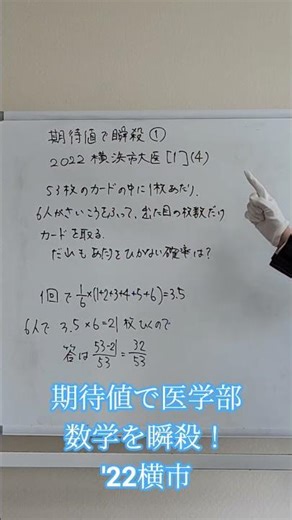 期待値で瞬殺 ①
2022 横浜市大医 [1] (4)
53枚のカードの中に1枚あたり.
6人がさいころをふって、出た目の枚数だけ
カードを取る.
だれもあたりをひかない確率は?
1回で 1/6 × (1+2+3+4+5+6) = 3.5
6人で 3.5 × 6 = 21 枚ひくので
答は (53-21)/53 = 32/53
期待値で医学部
数学を瞬殺！
'22横市